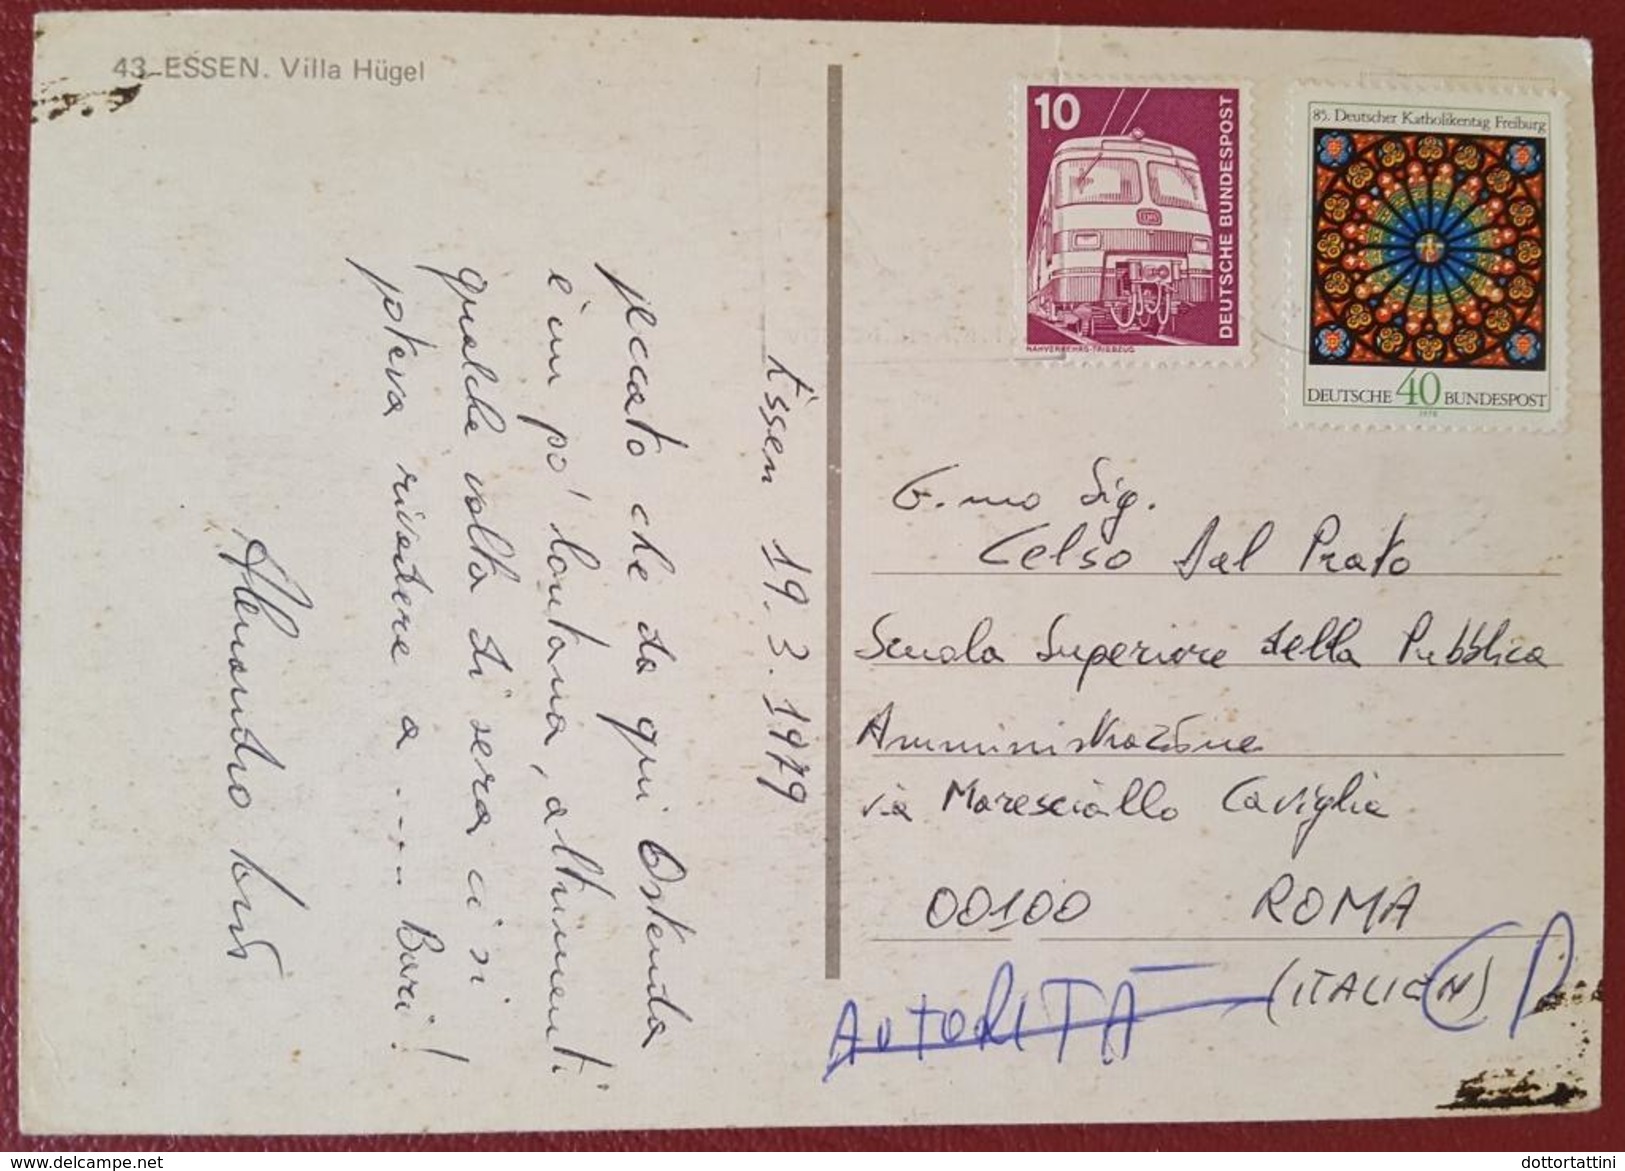 43 ESSEN. Villa Hügel
10
DEUTSCHE BUNDESPOST
NAHVERKEHRS-TRIEBZUG
DB
85. Deutscher Katholikentag Freiburg
DEUTSCHE 40 BUNDESPOST
1978
Essen 19.3.1979
peccato che da qui Ostenda
è un pò lontana, altrimenti
qualche volta di sera ci si
poteva rivedere a .... Bari!
E.mo Sig.
Celso Dal Prato
Scuola Superiore della Pubblica
Amministrazione
via Maresciallo Caviglia
00100 ROMA
(ITALIEN)
AUTORITÀ
CP
www.delcampe.net
dottortattini